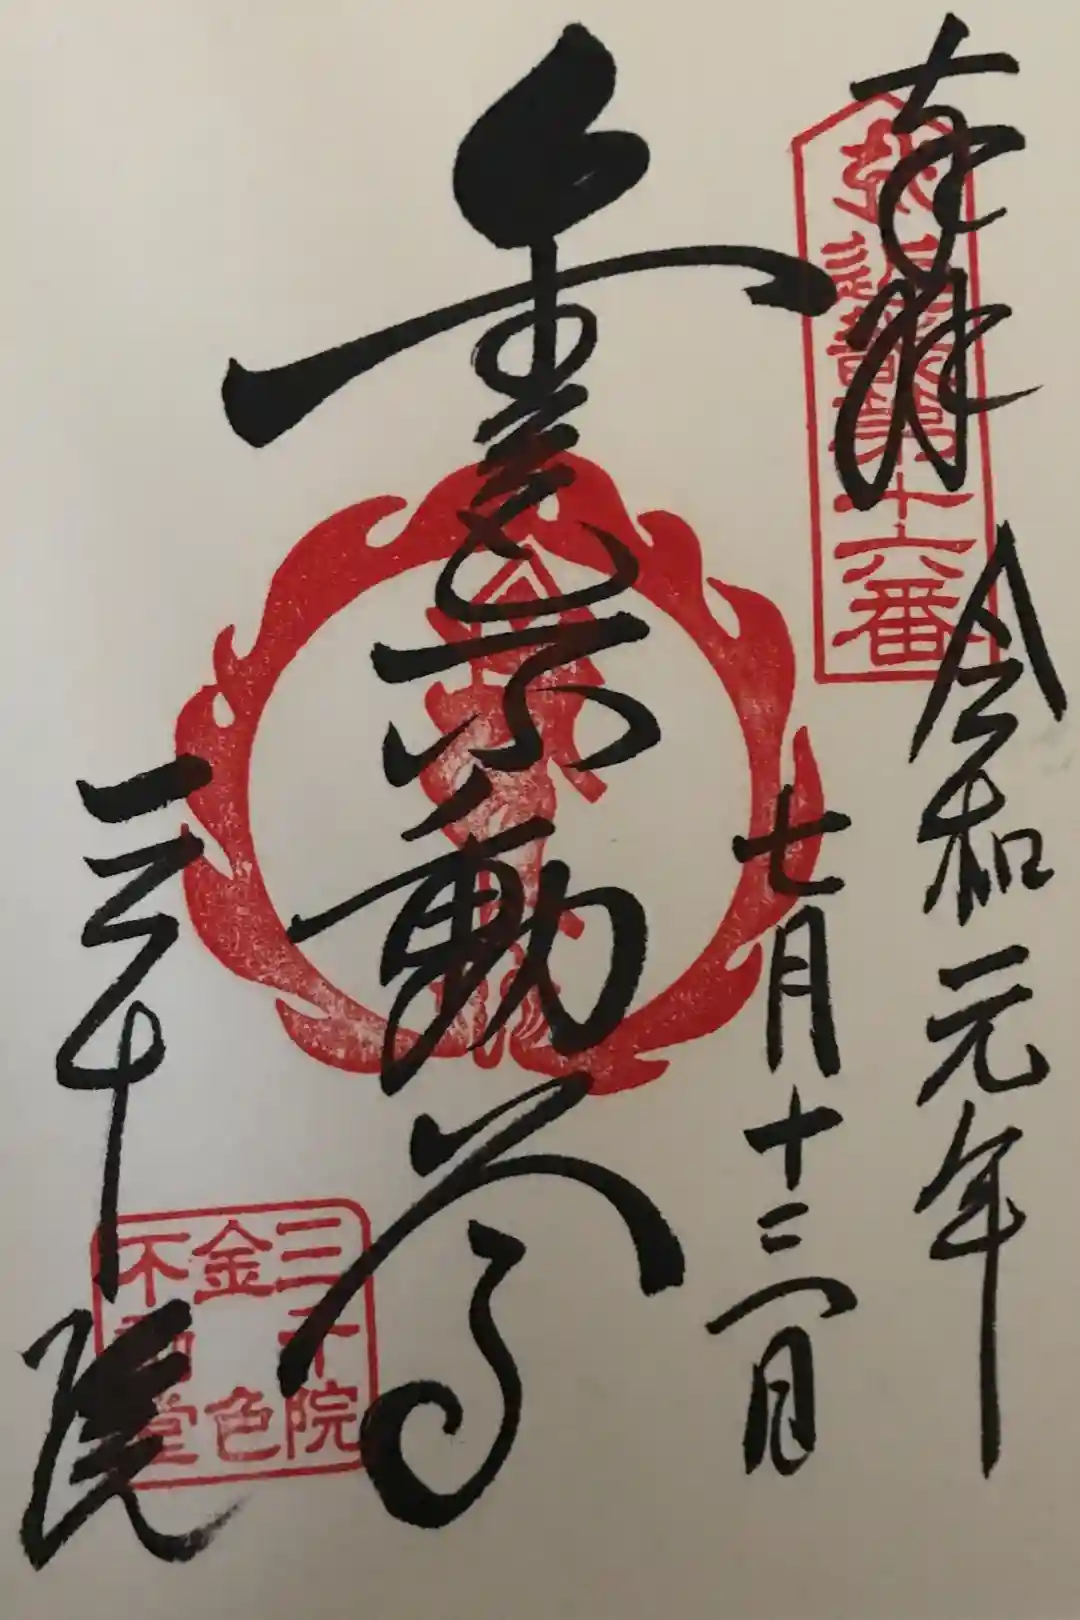 奉拝
第十六番
令和元年
七月十三日
金色不動尊
三千院
三千院
金色
不動堂